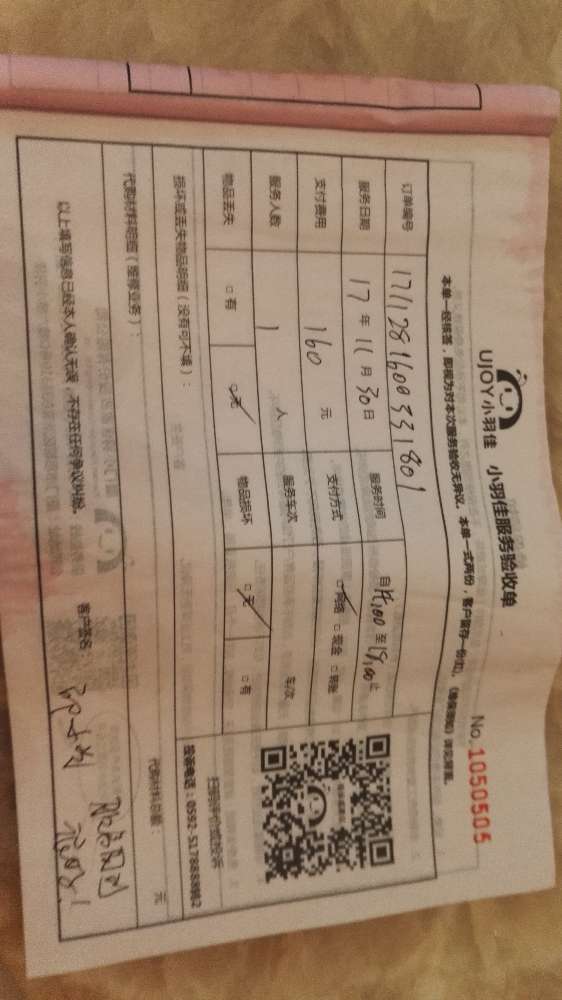 UJOY小羽佳 小羽佳服务验收单
No.1050505
本单一经核签，即视为对本次服务验收无异议。本单一式两份，客户留存一份(红)。
订单编号 1711281600331801
服务日期 17年11月30日 服务时间 自14:00至18:00止
支付费用 160元 支付方式 ☑网络 □现金 □转账
服务人数 1人 服务车次 车/次
物品丢失 □有 ☑无 物品损坏 ☑无 □有
损坏或丢失物品明细（没有可不填）：
扫码评价或投诉
代购材料明细（整修业务）： 代购材料总量： 元
以上填写信息已经本人确认无误，不存在任何争议纠纷。 客户签名：